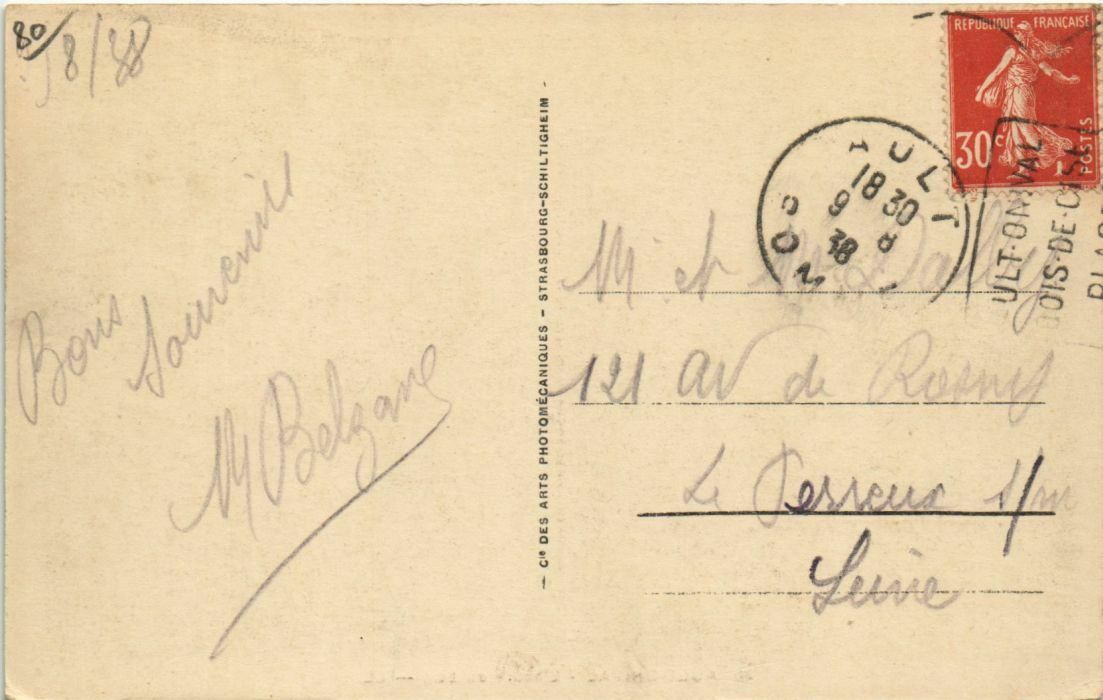 80
8/38
Bons
souvenirs
M Belgane
— Cie DES ARTS PHOTOMÉCANIQUES - STRASBOURG-SCHILTIGHEIM -
REPUBLIQUE FRANÇAISE
30c
POSTES
AULT
18 30
9 8
38
SOM
ULT-ONIVAL
BOIS-DE-CISE
PLAG
M et
121 av de Rosny
Le Perreux s/m
Seine